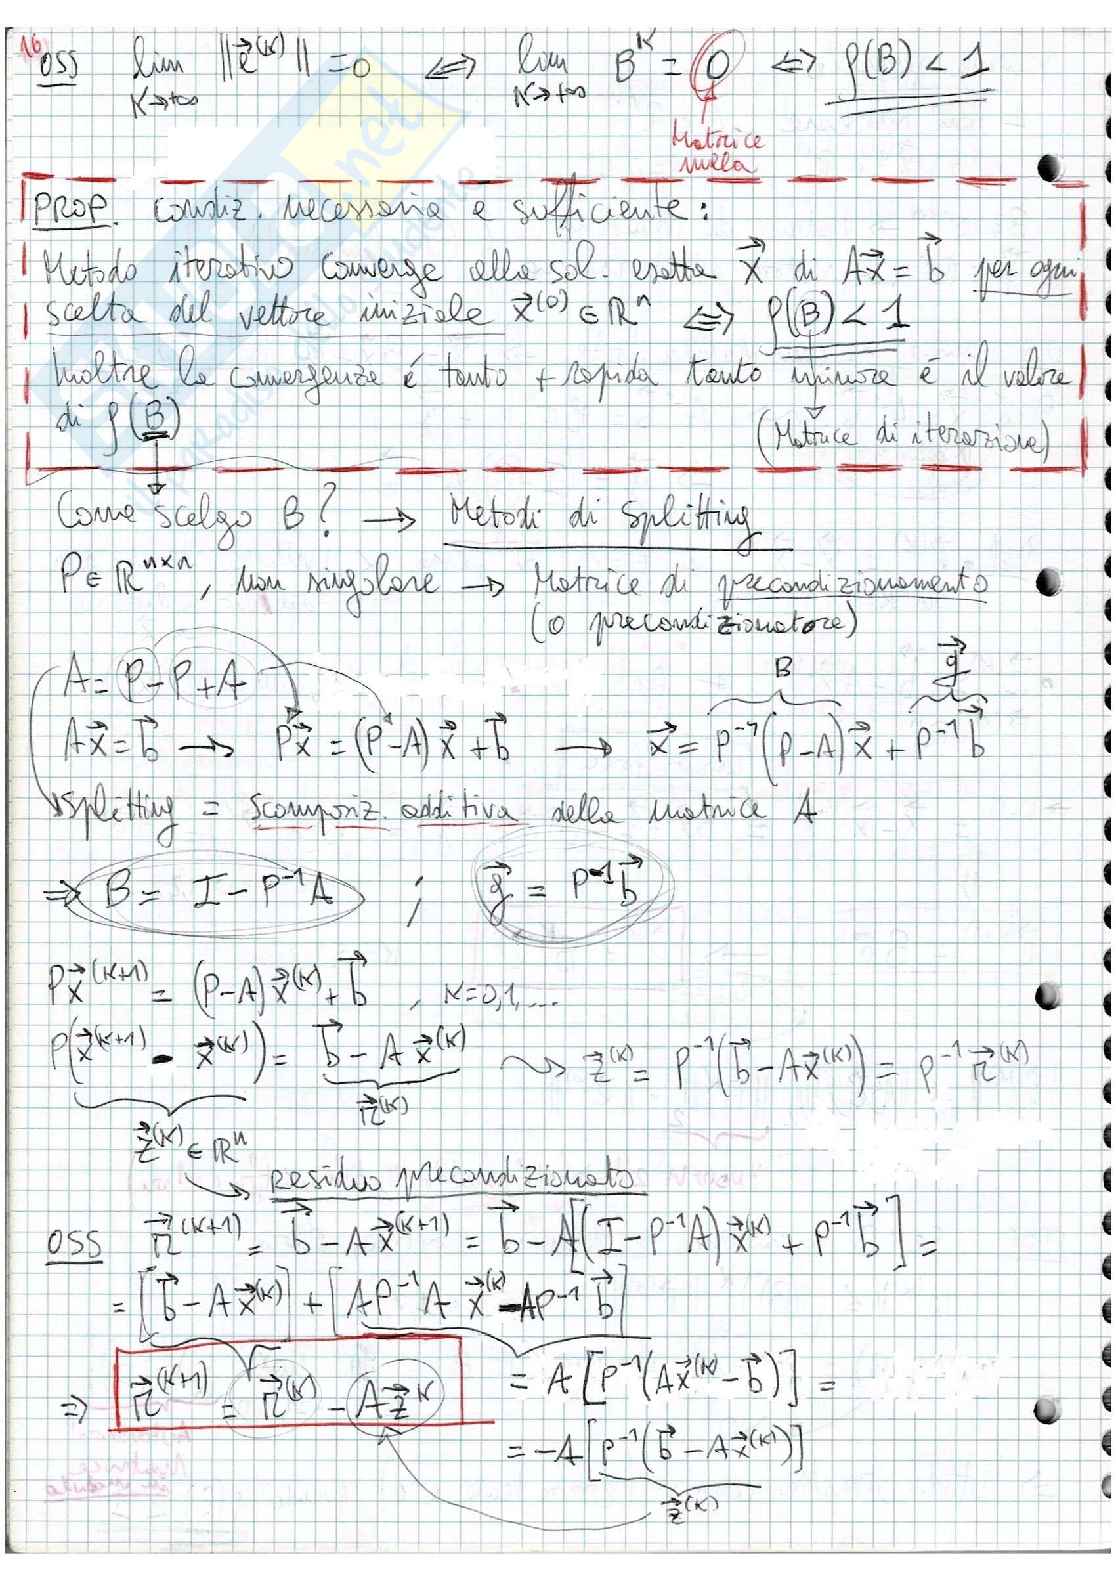 16
OSS lim ||e⃗^(K)|| = 0 ⇔ lim B^K = 0 ⇔ ρ(B) < 1
K→+∞ K→+∞
Matrice
nulla
PROP. condiz. necessaria e sufficiente:
Metodo iterativo converge alla sol. esatta x⃗ di Ax⃗ = b⃗ per ogni
scelta del vettore iniziale x⃗^(0) ∈ ℝ^n ⇔ ρ(B) < 1
Inoltre la convergenza é tanto + rapida tanto minore é il valore
di ρ(B)
(Matrice di iterazione)
Come scelgo B? → Metodi di Splitting
P ∈ ℝ^{n×n}, non singolare → Matrice di precondizionamento
(o precondizionatore)
A = P - P + A
B g⃗
Ax⃗ = b⃗ → Px⃗ = (P-A)x⃗ + b⃗ → x⃗ = P^-1(P-A)x⃗ + P^-1 b⃗
Splitting = scomposiz. additiva della matrice A
⇒ B = I - P^-1 A ; g⃗ = P^-1 b⃗
Px⃗^(K+1) = (P-A)x⃗^(K) + b⃗ , K=0,1,...
P(x⃗^(K+1) - x⃗^(K)) = b⃗ - Ax⃗^(K) ⤳ z⃗^(K) = P^-1(b⃗ - Ax⃗^(K)) = P^-1 r⃗^(K)
r⃗^(K)
z⃗^(K) ∈ ℝ^n
residuo precondizionato
OSS r⃗^(K+1) = b⃗ - Ax⃗^(K+1) = b⃗ - A[(I - P^-1 A)x⃗^(K) + P^-1 b⃗] =
= [b⃗ - Ax⃗^(K)] + [AP^-1 A x⃗^(K) - AP^-1 b⃗]
⇒ r⃗^(K+1) = r⃗^(K) - Az⃗^K
= A[P^-1(Ax⃗^(K) - b⃗)] =
= -A[P^-1(b⃗ - Ax⃗^(K))]
z⃗^(K)